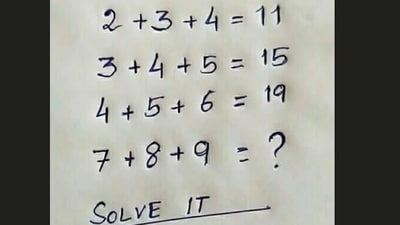 2 + 3 + 4 = 11
3 + 4 + 5 = 15
4 + 5 + 6 = 19
7 + 8 + 9 = ?
SOLVE IT